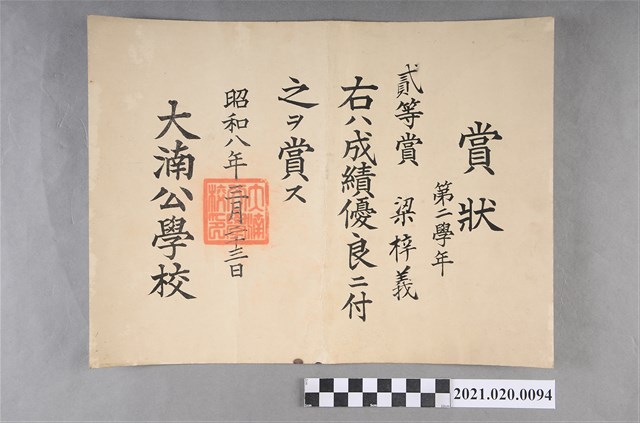 賞狀
第二學年
貳等賞 梁梓義
右ハ成績優良ニ付
之ヲ賞ス
昭和八年三月二十三日
大湳公學校
2021.020.0094